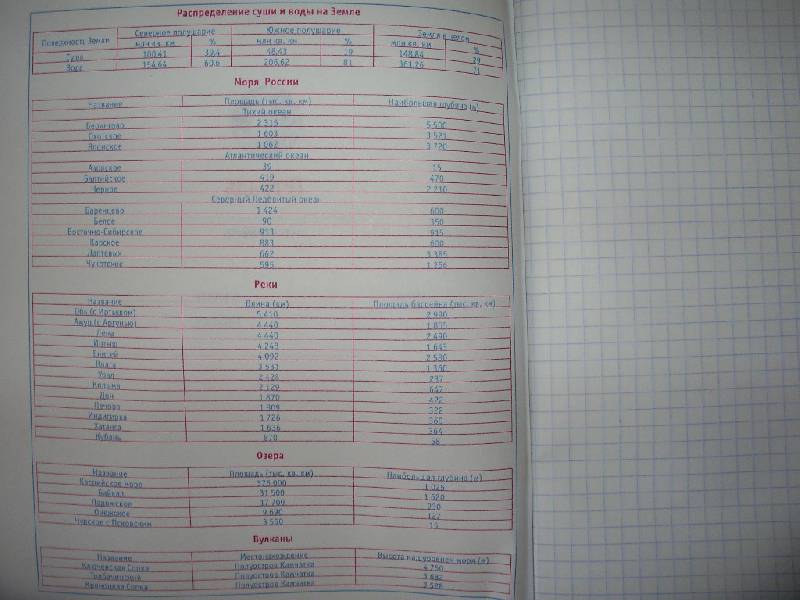 Распределение суши и воды на Земле
Поверхность Земли Северное полушарие Южное полушарие Земля в целом
млн кв. км % млн кв. км % млн кв. км %
Суша 100,41 39,4 48,43 19 148,84 29
Вода 154,64 60,6 206,62 81 361,26 71
Моря России
Название Площадь (тыс. кв. км) Наибольшая глубина (м)
Тихий океан
Берингово 2 315 5 500
Охотское 1 603 3 521
Японское 1 062 3 720
Атлантический океан
Азовское 39
Балтийское 419 470
Черное 422 2 210
Северный Ледовитый океан
Баренцево 1 424 600
Белое 90 350
Восточно-Сибирское 913 915
Карское 883 600
Лаптевых 662 3 385
Чукотское 595 1 256
Реки
Название Длина (км) Площадь бассейна (тыс. кв. км)
Обь (с Иртышом) 5 410 2 990
Амур (с Аргунью) 4 440 1 855
Лена 4 440 2 490
Иртыш 4 248 1 643
Енисей 4 092 2 580
Волга 3 531 1 360
Урал 2 428 237
Колыма 2 129 647
Дон 1 870 422
Печора 1 809 322
Индигирка 1 726 360
Хатанга 1 636 364
Кубань 870 58
Озера
Название Площадь (тыс. кв. км) Наибольшая глубина (м)
Каспийское море 1 025
Байкал 31 500 1 620
Ладожское 230
Онежское 127
Чудское с Псковским 3 550 15
Вулканы
Название Местонахождение Высота над уровнем моря (м)
Ключевская Сопка Полуостров Камчатка 4 750
Толбачинский Полуостров Камчатка 3 682
Сопка Полуостров Камчатка